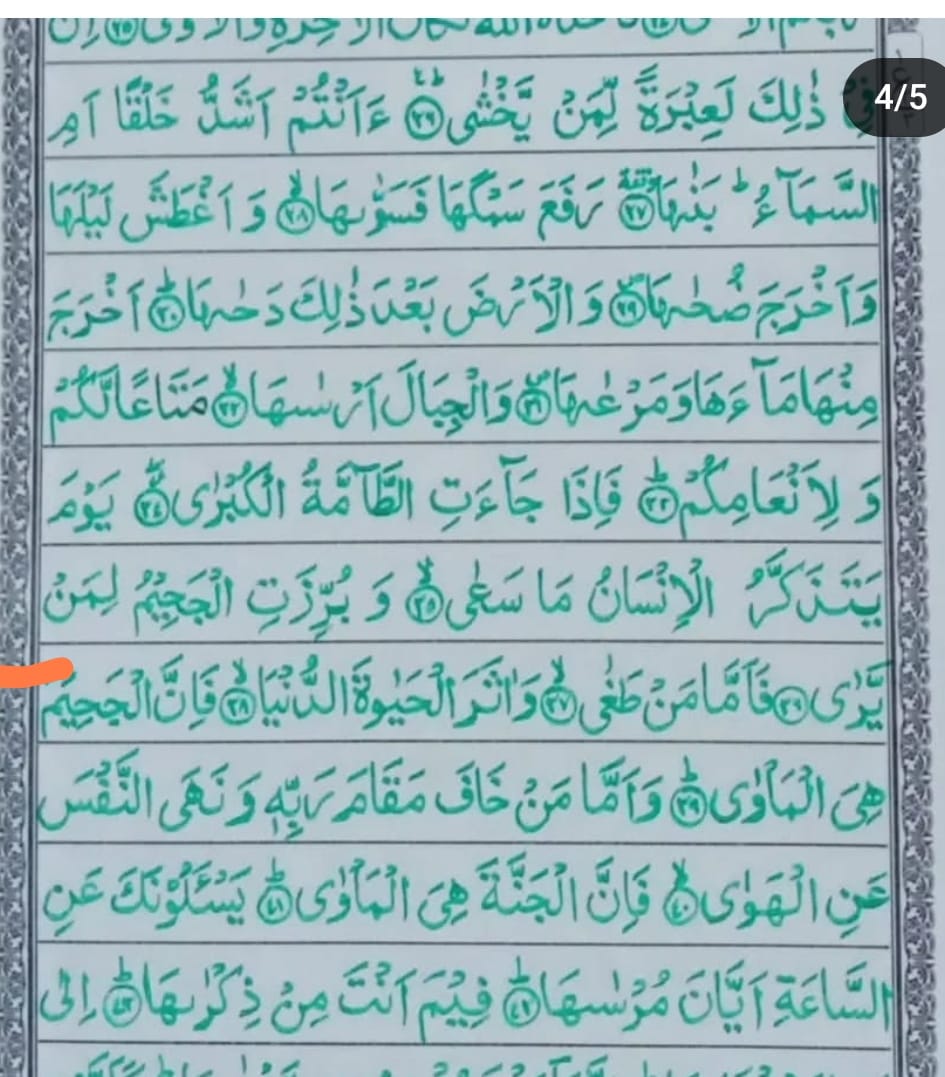 4/5
ذٰلِكَ لَعِبْرَةً لِّمَنْ يَّخْشٰى ﴿٢٦﴾ ءَاَنْتُمْ اَشَدُّ خَلْقًا اَمِ
السَّمَآءُ ؕ بَنٰىهَا ﴿٢٧﴾ رَفَعَ سَمْكَهَا فَسَوّٰىهَا ﴿٢٨﴾ وَ اَغْطَشَ لَيْلَهَا
وَاَخْرَجَ ضُحٰىهَا ﴿٢٩﴾ وَ الْاَرْضَ بَعْدَ ذٰلِكَ دَحٰىهَا ﴿٣٠﴾ اَخْرَجَ
مِنْهَا مَآءَهَا وَ مَرْعٰىهَا ﴿٣١﴾ وَالْجِبَالَ اَرْسٰىهَا ﴿٣٢﴾ مَتَاعًا لَّكُمْ
وَ لِاَنْعَامِكُمْ ﴿٣٣﴾ فَاِذَا جَآءَتِ الطَّآمَّةُ الْكُبْرٰى ﴿٣٤﴾ يَوْمَ
يَتَذَكَّرُ الْاِنْسَانُ مَا سَعٰى ﴿٣٥﴾ وَ بُرِّزَتِ الْجَحِيْمُ لِمَنْ
يَّرٰى ﴿٣٦﴾ فَاَمَّا مَنْ طَغٰى ﴿٣٧﴾ وَاٰثَرَ الْحَيٰوةَ الدُّنْيَا ﴿٣٨﴾ فَاِنَّ الْجَحِيْمَ
هِيَ الْمَاْوٰى ﴿٣٩﴾ وَ اَمَّا مَنْ خَافَ مَقَامَ رَبِّهٖ وَ نَهَى النَّفْسَ
عَنِ الْهَوٰى ﴿٤٠﴾ فَاِنَّ الْجَنَّةَ هِيَ الْمَاْوٰى ﴿٤١﴾ يَسْـَٔلُوْنَكَ عَنِ
السَّاعَةِ اَيَّانَ مُرْسٰىهَا ﴿٤٢﴾ فِيْمَ اَنْتَ مِنْ ذِكْرٰىهَا ﴿٤٣﴾ اِلٰى